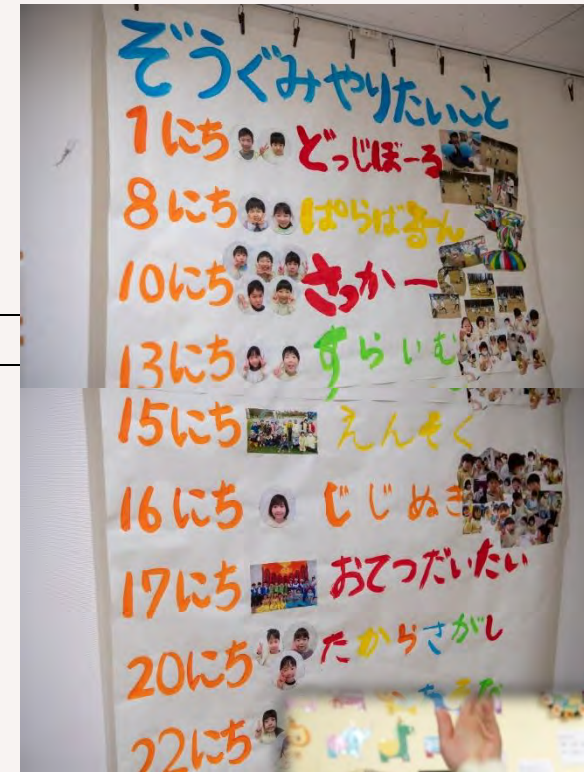 ぞうぐみやりたいこと
1にち どっじぼーる
8にち ぱらばるーん
10にち さっかー
13にち すらいむ
15にち えんそく
16にち じじぬき
17にち おてつだいたい
20にち たからさがし
22にち